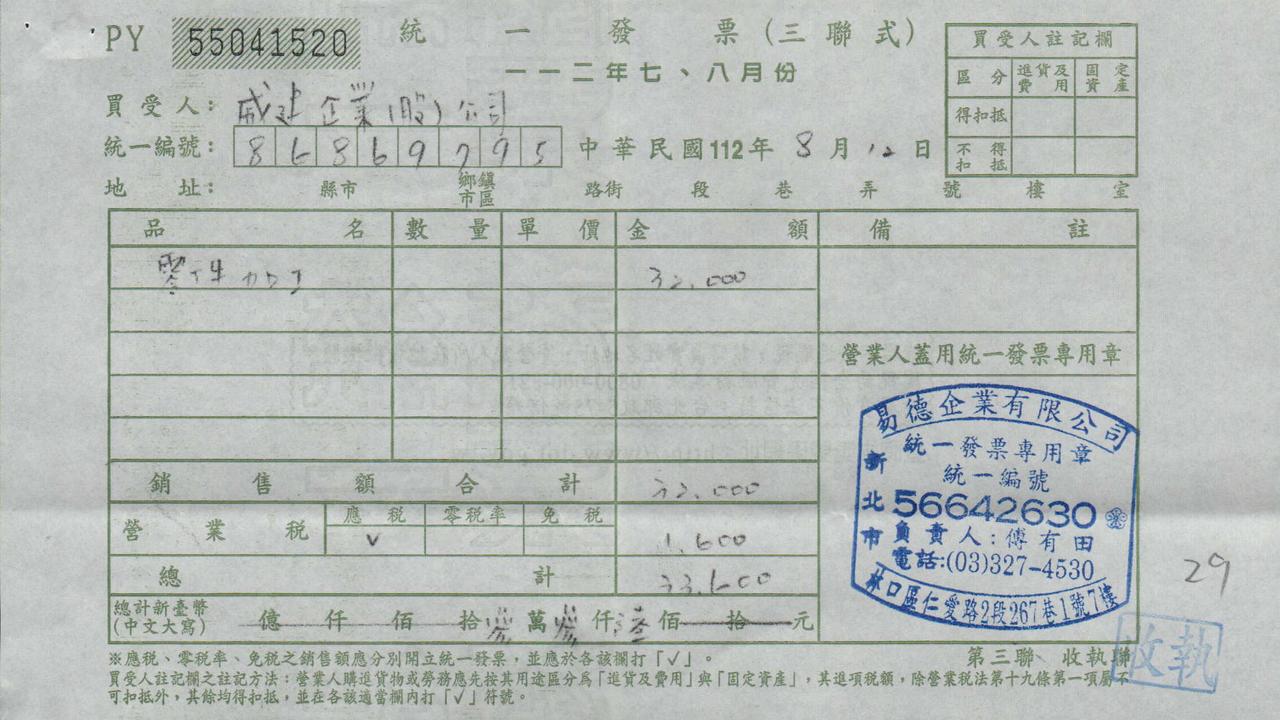 PY 55041520 統一發票(三聯式)
一一二年七、八月份
買受人註記欄
區分 進貨及費用 固定資產
得扣抵
不得扣抵
買受人: 威建企業(股)公司
統一編號: 86869795 中華民國112年8月12日
地址: 縣市 鄉鎮市區 路街 段 巷 弄 號 樓 室
品名 數量 單價 金額 備註
零件加工 32,000
營業人蓋用統一發票專用章
銷售額合計 32,000
營業稅 應稅 零稅率 免稅
V 1,600
總計 33,600
總計新臺幣(中文大寫) 億 仟 佰 拾 參 萬 參 仟 陸 佰 拾 元
易德企業有限公司
統一發票專用章
統一編號
56642630
負責人:傅有田
電話:(03)327-4530
新北市
林口區仁愛路2段267巷1號7樓
29
※應稅、零稅率、免稅之銷售額應分別開立統一發票,並應於各該欄打「✓」。
第三聯、收執聯
收執
買受人註記欄之註記方法:營業人購進貨物或勞務應先按其用途區分為「進貨及費用」與「固定資產」,其進項稅額,除營業稅法第十九條第一項屬不
可扣抵外,其餘均得扣抵,並在各該適當欄內打「✓」符號。